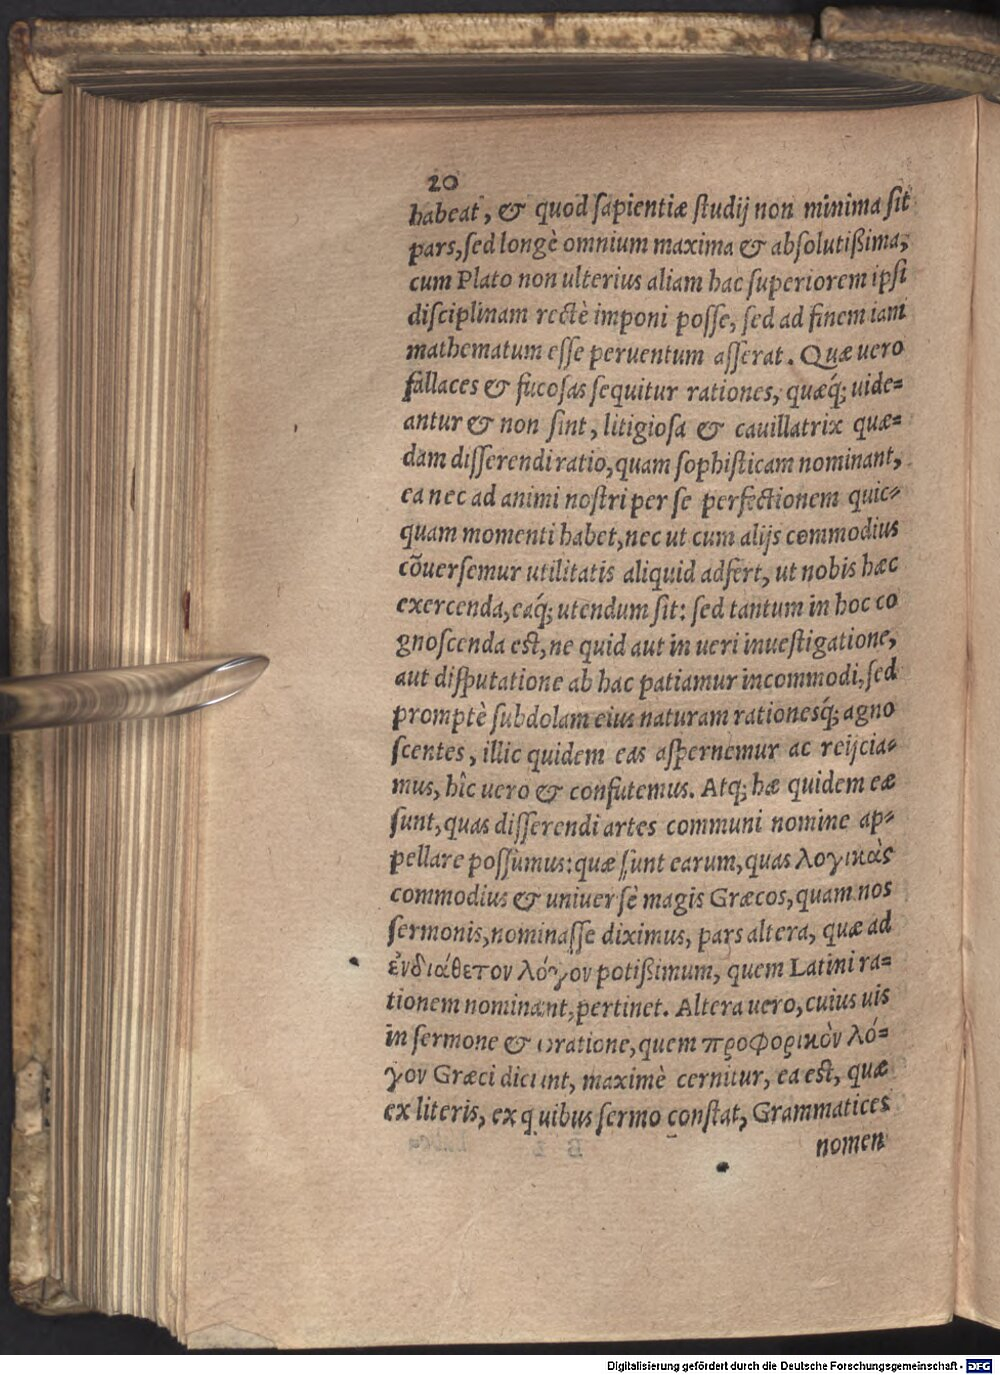 20
habeat, & quod ſapientiæ ſtudij non minima ſit
pars, ſed longè omnium maxima & abſolutißima,
cum Plato non ulterius aliam hac ſuperiorem ipſi
diſciplinam rectè imponi poſſe, ſed ad finem iam
mathematum eſſe peruentum aſſerat. Quæ uero
fallaces & fucoſas ſequitur rationes, quæq́; uide=
antur & non ſint, litigioſa & cauillatrix quæ=
dam diſſerendi ratio, quam ſophiſticam nominant,
ea nec ad animi noſtri per ſe perfectionem quic=
quam momenti habet, nec ut cum alijs commodius
cõuerſemur utilitatis aliquid adfert, ut nobis hæc
exercenda, eaq́; utendum ſit: ſed tantum in hoc co
gnoſcenda eſt, ne quid aut in ueri inueſtigatione,
aut diſputatione ab hac patiamur incommodi, ſed
promptè ſubdolam eius naturam rationesq́; agno
ſcentes, illic quidem eas aſpernemur ac reijcia=
mus, hîc uero & confutemus. Atq; hæ quidem eæ
ſunt, quas diſſerendi artes communi nomine ap=
pellare poſſumus: quæ ſunt earum, quas λογικὰς
commodius & uniuerſè magis Græcos, quam nos
ſermonis, nominaſſe diximus, pars altera, quæ ad
ἐνδιάθετον λόγον potißimum, quem Latini ra=
tionem nominant, pertinet. Altera uero, cuius uis
in ſermone & oratione, quem προφορικὸν λό=
γον Græci dicunt, maximè cernitur, ea eſt, quæ
ex literis, ex quibus ſermo conſtat, Grammatices
nomen
Digitalisierung gefördert durch die Deutsche Forschungsgemeinschaft - DFG